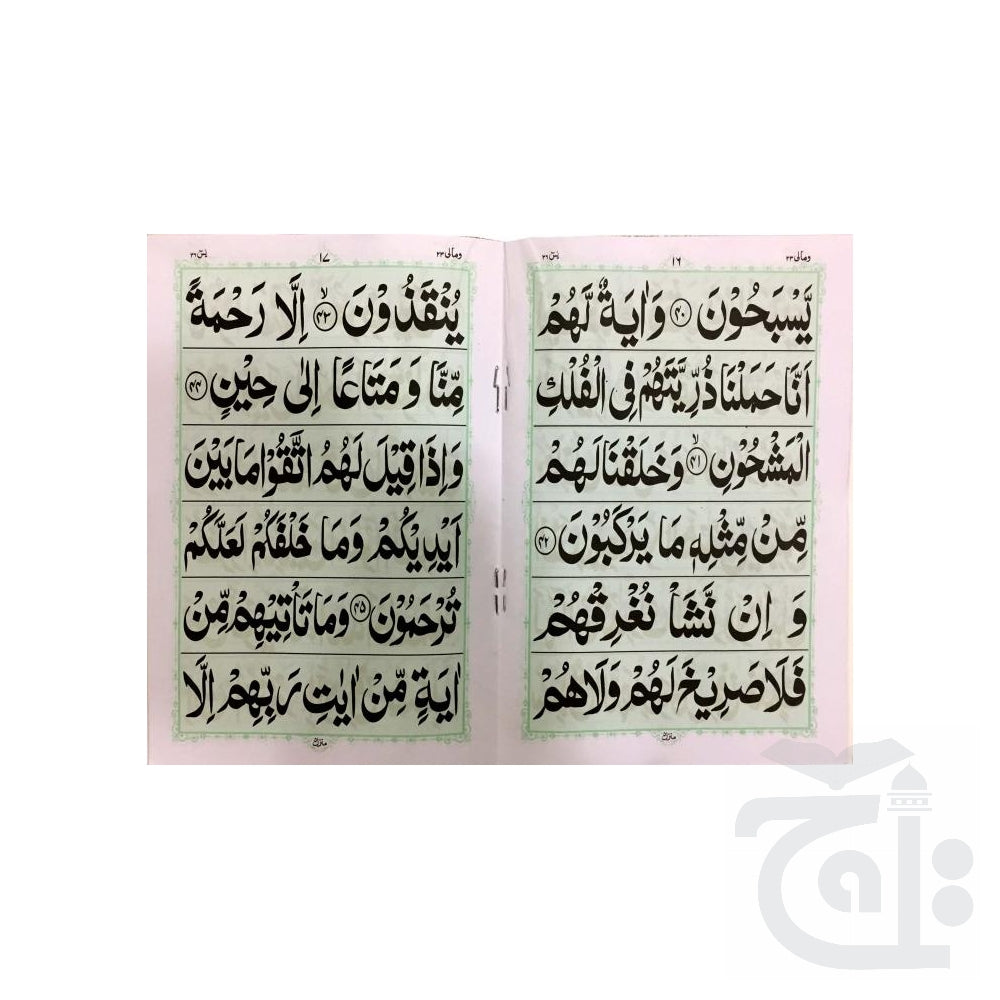 ومالی ۲۳ ۱۶ یٰسٓ ۳۶
یَّسْبَحُوْنَ ۴۰ وَاٰیَةٌ لَّهُمْ
اَنَّا حَمَلْنَا ذُرِّیَّتَهُمْ فِی الْفُلْكِ
الْمَشْحُوْنِ ۙ۴۱ وَخَلَقْنَا لَهُمْ
مِّنْ مِّثْلِهٖ مَا یَرْكَبُوْنَ ۴۲
وَ اِنْ نَّشَاْ نُغْرِقْهُمْ
فَلَا صَرِیْخَ لَهُمْ وَلَا هُمْ
منزل ۵
ومالی ۲۳ ۱۷ یٰسٓ ۳۶
یُنْقَذُوْنَ ۙ۴۳ اِلَّا رَحْمَةً
مِّنَّا وَ مَتَاعًا اِلٰی حِیْنٍ ۴۴
وَاِذَا قِیْلَ لَهُمُ اتَّقُوْا مَا بَیْنَ
اَیْدِیْكُمْ وَمَا خَلْفَكُمْ لَعَلَّكُمْ
تُرْحَمُوْنَ ۴۵ وَمَا تَاْتِیْهِمْ مِّنْ
اٰیَةٍ مِّنْ اٰیٰتِ رَبِّهِمْ اِلَّا
منزل ۵